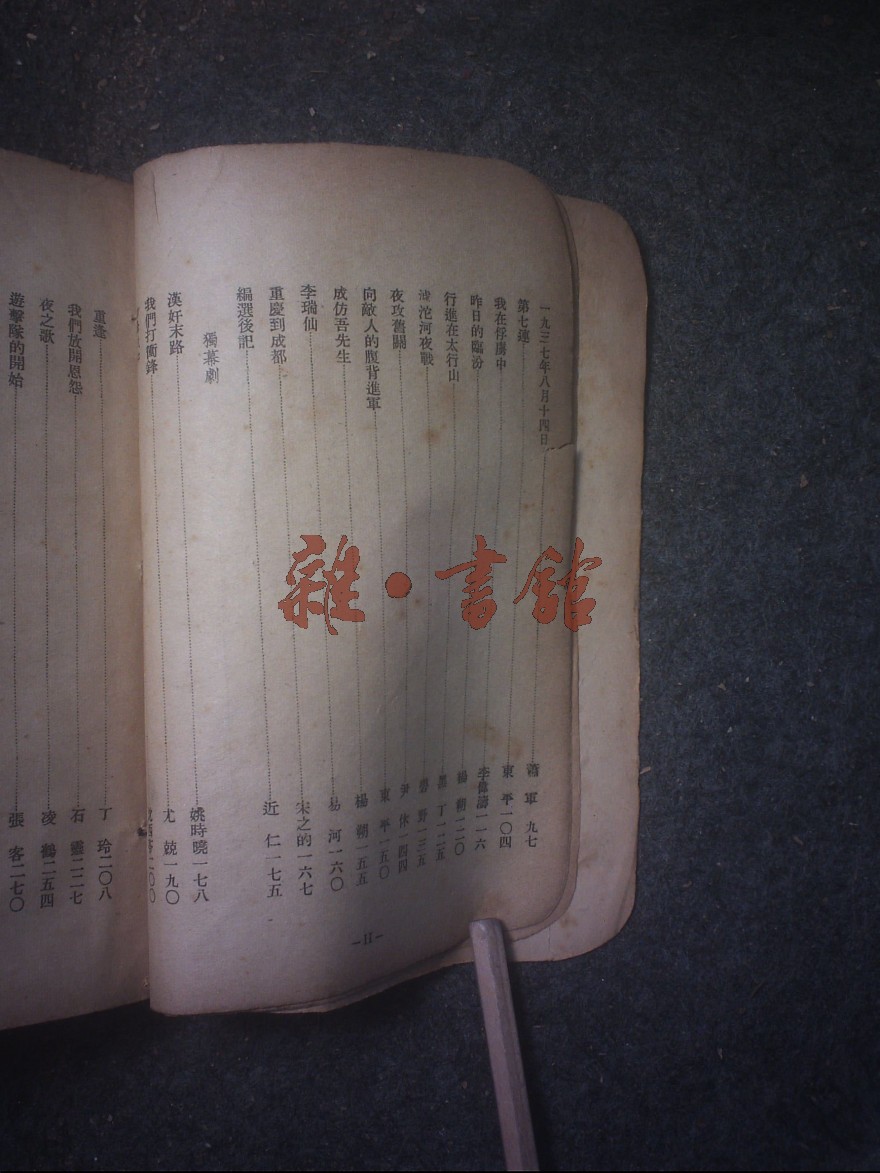 一九三七年八月十四日 蕭軍 九七
第七連 東平 一〇四
我在俘虜中 李偉濤 一一六
昨日的臨汾 楊朔 一二〇
行進在太行山 黑丁 一二五
滹沱河夜戰 碧野 一三五
夜攻舊關 尹休 一四四
向敵人的腹背進軍 東平 一五〇
成仿吾先生 楊朔 一五五
李瑞仙 易河 一六〇
重慶到成都 宋之的 一六七
編選後記 近仁 一七五
獨幕劇
漢奸末路 姚時曉 一七八
我們打衝鋒 尤兢 一九〇
二〇〇
重逢 丁玲 二〇八
我們放開恩怨 石靈 二二七
夜之歌 凌鶴 二五四
遊擊隊的開始 張客 二七〇
—II—
雜·書館